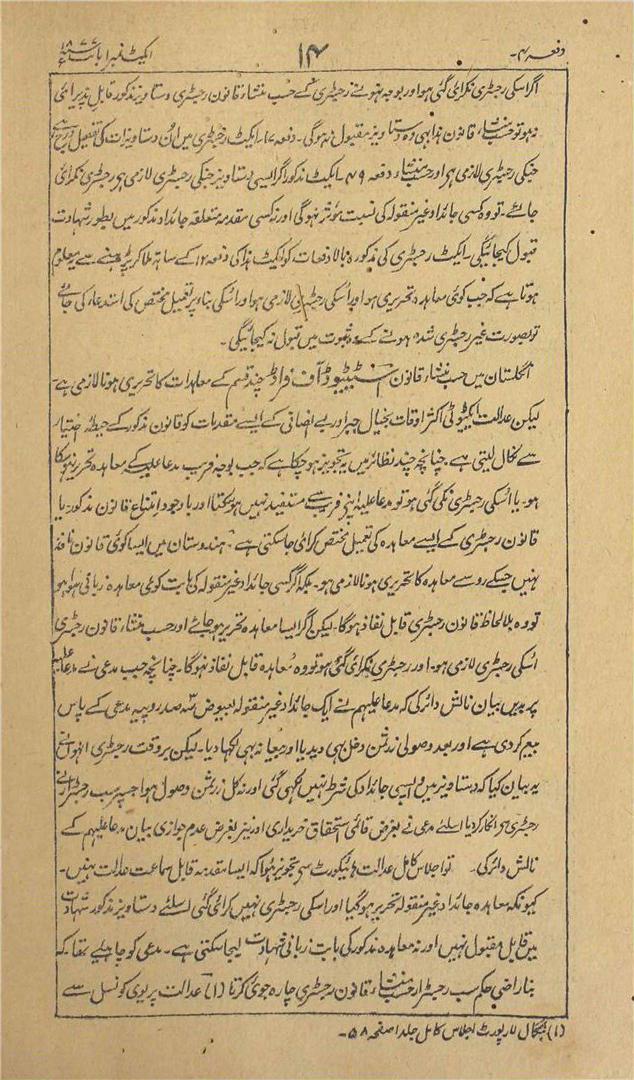 دفعہ ۴۔ ۱۴ ایکٹ نمبر ا بابت ۱۸۷۷ء
اگر اسکی رجسٹری نکرائی گئی ہو اور بوجہ نہونے رجسٹری کے حسب منشاء قانون رجسٹری دستاویز مذکور قابل پذیرائی
نہو تو حسب منشاء قانون ہذا بھی وہ دستاویز مقبول نہوگی۔ دفعہ ۱۷۔ ایکٹ رجسٹری میں ان دستاویزات کی تفصیل درج ہے
جنکی رجسٹری لازمی ہی اور حسب منشاء دفعہ ۴۹۔ ایکٹ مذکور اگر ایسی دستاویز جنکی رجسٹری لازمی ہی رجسٹری نکرائی
جائے۔ تو وہ کسی جائداد غیر منقولہ کی نسبت مؤثر نہوگی اور نہ کسی مقدمہ متعلقہ جائداد مذکور میں بطور شہادت
قبول کیجائیگی۔ ایکٹ رجسٹری کی مذکورہ بالا دفعات کو ایکٹ ہذا کی دفعہ ۴ کے ساتھ ملا کر پڑہنے سے معلوم
ہوتا ہے کہ جب کوئی معاہدہ تحریری ہو اور اسکی رجسٹری لازمی ہو اور اسکی بناء پر تعمیل مختص کی استدعاء کی جائے
تو بصورت غیر رجسٹری شدہ ہونے کے وہ ثبوت میں قبول نہ کیجائیگی۔
انگلستان میں حسب منشاء قانون اسٹیٹیوٹ آف فراڈز چند قسم کے معاہدات کا تحریری ہونا لازمی ہے۔
لیکن عدالت ایکیوٹی اکثر اوقات بخیال جبر اور بے انصافی کے ایسے مقدمات کو قانون مذکور کے حیطہ اختیار
سے نکال لیتی ہے۔ چنانچہ چند نظائر میں یہ تجویز ہو چکا ہے کہ جب بوجہ فریب مدعا علیہ کے معاہدہ تحریر نہو سکا
ہو۔ یا اسکی رجسٹری نکی گئی ہو تو مدعا علیہ اپنے فریب سے مستفید نہیں ہو سکتا اور باوجود امتناع قانون مذکور۔ یا
قانون رجسٹری کے ایسے معاہدہ کی تعمیل مختص کرائی جا سکتی ہے۔ ہندوستان میں ایسا کوئی قانون نافذ
نہیں جسکے روسے معاہدہ کا تحریری ہونا لازمی ہو۔ بلکہ اگر کسی جائداد غیر منقولہ کی بابت کوئی معاہدہ زبانی ہوا ہو
تو وہ بلالحاظ قانون رجسٹری قابل نفاذ ہوگا۔ لیکن اگر ایسا معاہدہ تحریر ہو جائے اور حسب منشاء قانون رجسٹری
اسکی رجسٹری لازمی ہو۔ اور رجسٹری نکرائی گئی ہو تو وہ معاہدہ قابل نفاذ نہوگا۔ چنانچہ جب مدعی نے مدعا علیہم
پر بدیں بیان نالش دائر کی کہ مدعا علیہم نے ایک جائداد غیر منقولہ بعیوض صدر روپیہ مدعی کے پاس
بیع کردی ہے اور بعد وصولی زر ثمن دخل بھی دیدیا اور بیعانامہ بھی لکہا دیا۔ لیکن بروقت رجسٹری انہوں نے
یہ بیان کیا کہ دستاویز میں واپسی جائداد کی شرط نہیں لکہی گئی اور نہ کل زر ثمن وصول ہوا جسپر سب رجسٹرار نے
رجسٹری سے انکار کردیا اسلئے مدعی نے بغرض قائمی استحقاق خریداری اور نیز بغرض عدم جوازی بیان مدعا علیہم کے
نالش دائر کی۔ تو اجلاس کامل عدالت ہائیکورٹ سے تجویز ہوا کہ ایسا مقدمہ قابل سماعت عدالت نہیں۔
کیونکہ معاہدہ جائداد غیر منقولہ تحریر ہوگیا اور اسکی رجسٹری نہیں کرائی گئی اسلئے دستاویز مذکور شہادت
میں قابل مقبول نہیں اور نہ معاہدہ مذکور کی بابت زبانی شہادت لیجا سکتی ہے۔ مدعی کو چاہئے تھا کہ
بناراضی حکم سب رجسٹرار حسب منشاء قانون رجسٹری چارہ جوئی کرتا (۱) عدالت پریوی کونسل سے
(۱) بنگال لا رپورٹ اجلاس کامل جلد ا صفحہ ۵۸۔